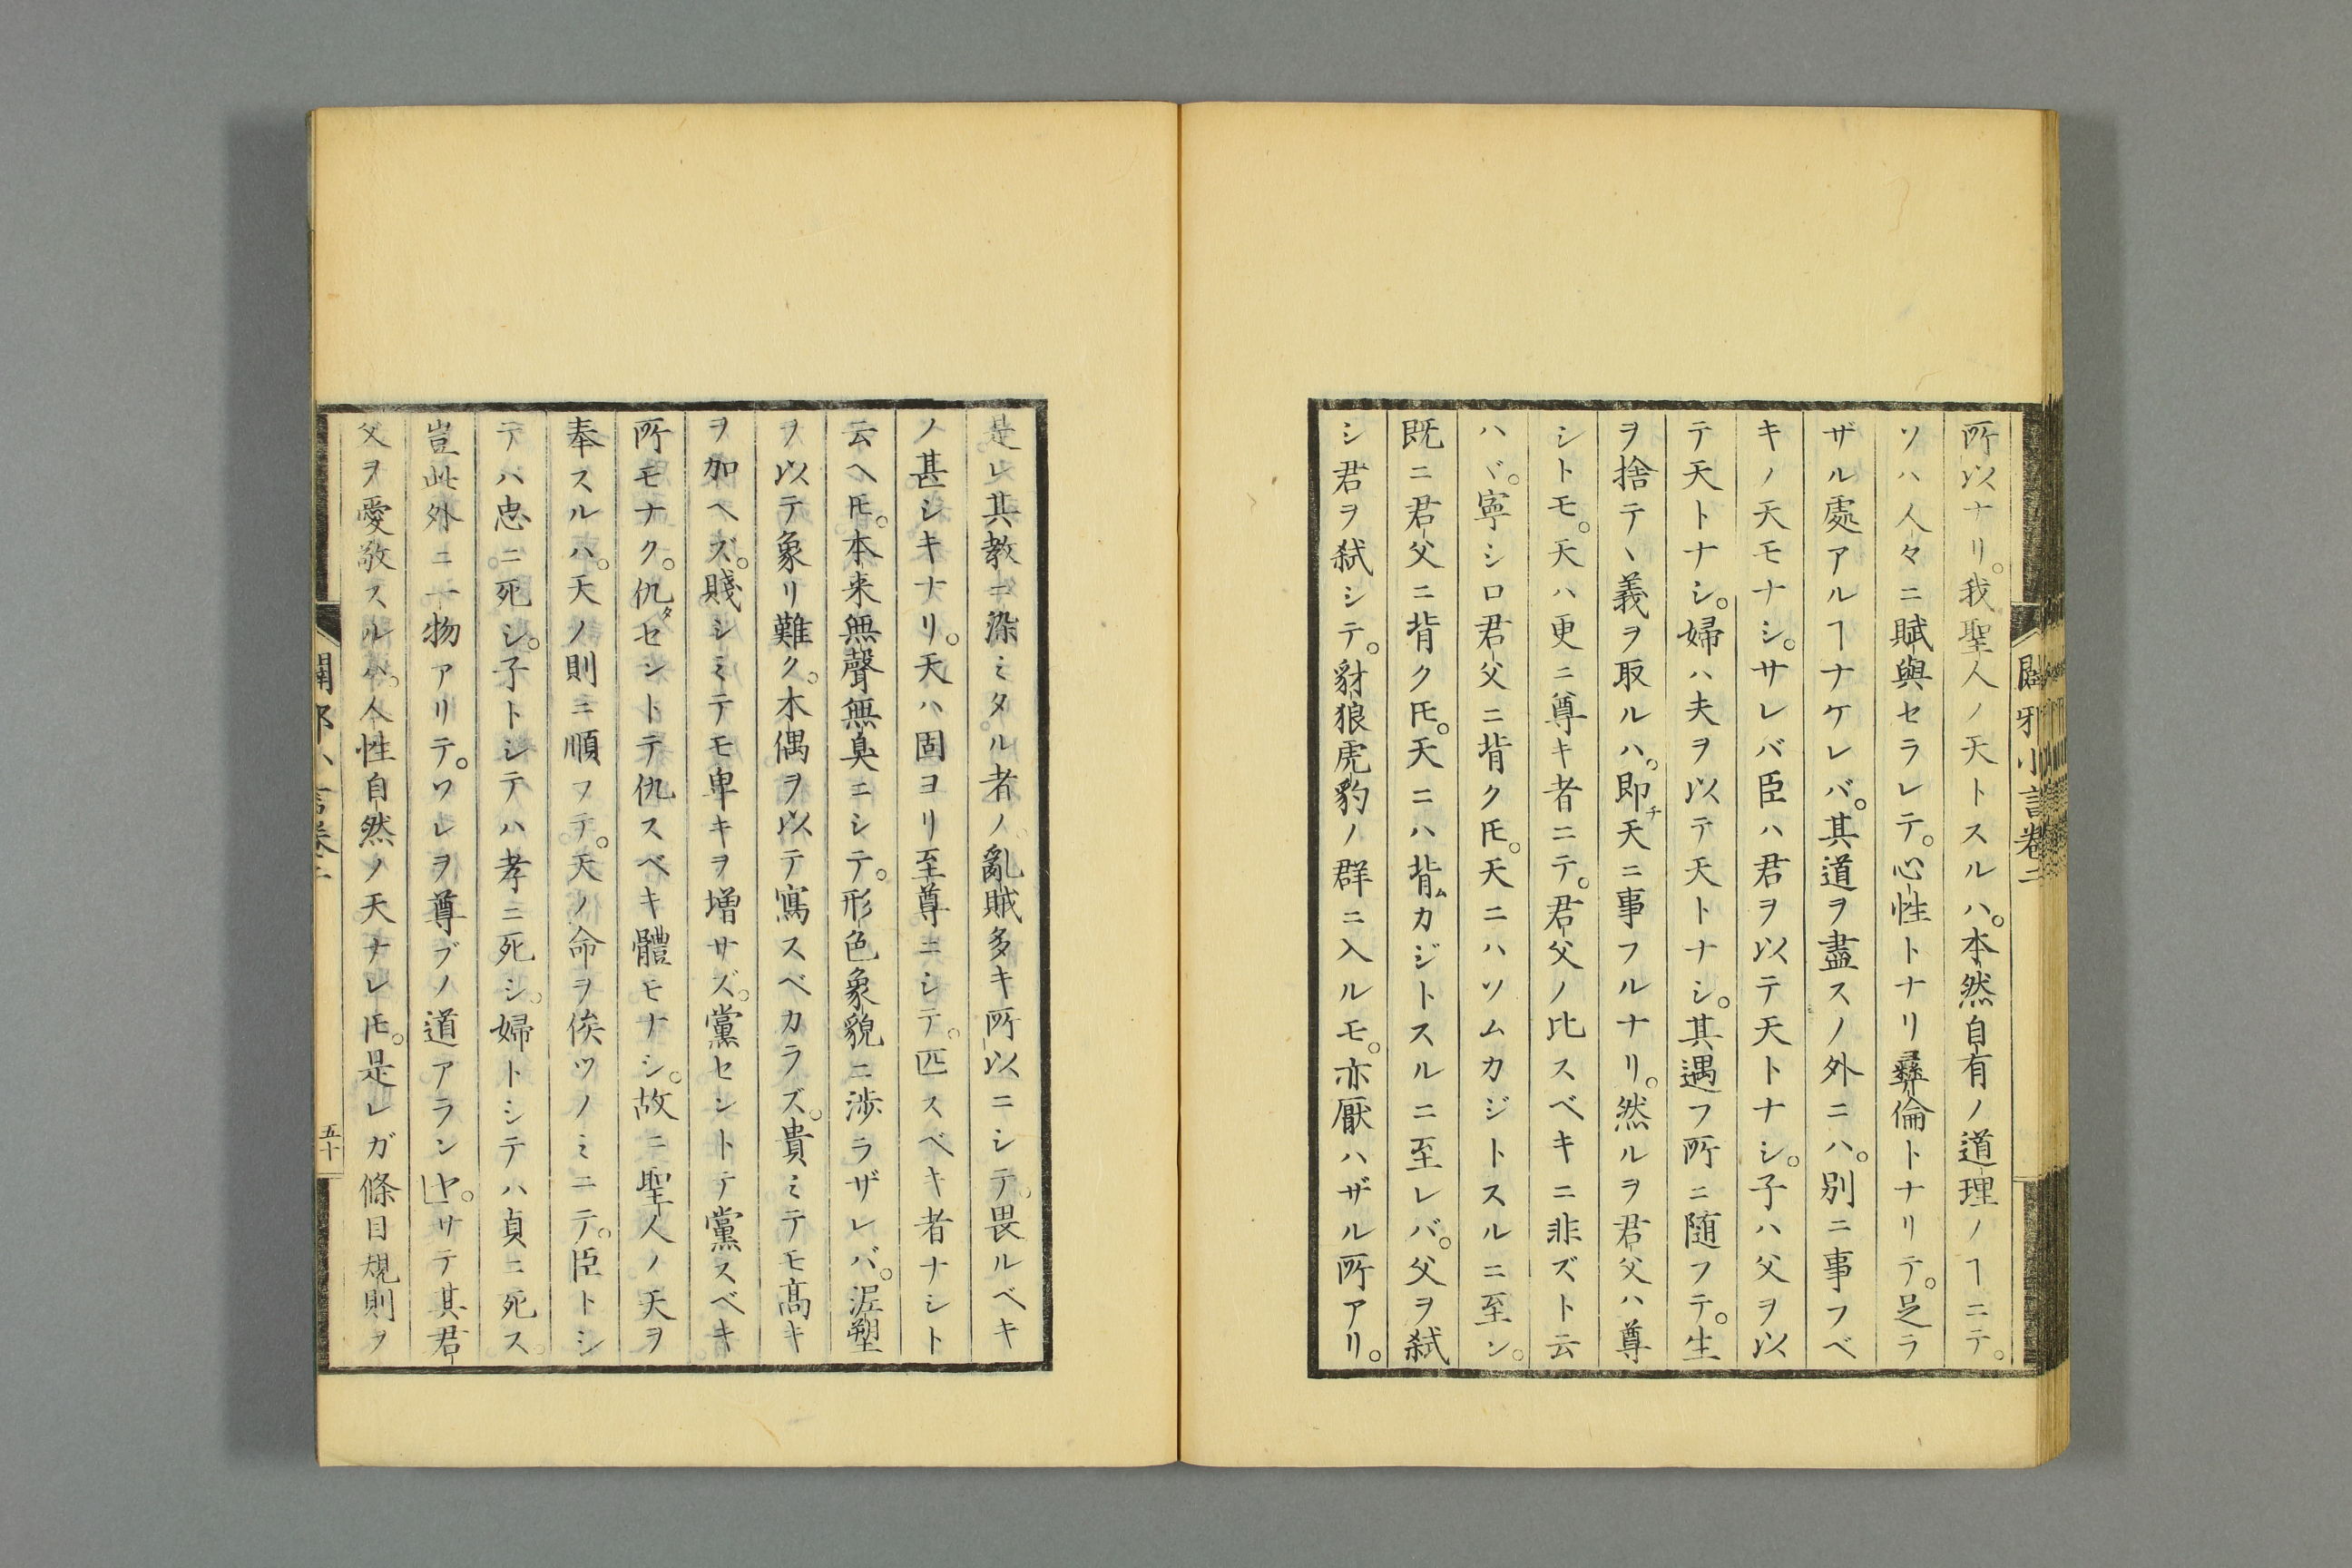 闢邪小言卷二
所以ナリ。我聖人ノ天トスルハ。本然自有ノ道理ノヿニテ。
ソハ人々ニ賦與セラレテ。心性トナリ彝倫トナリテ。足ラ
ザル處アルヿナケレバ。其道ヲ盡スノ外ニハ。別ニ事フベ
キノ天モナシ。サレバ臣ハ君ヲ以テ天トナシ。子ハ父ヲ以
テ天トナシ。婦ハ夫ヲ以テ天トナシ。其遇フ所ニ随フテ。生
ヲ捨テヽ義ヲ取ルハ。即チ天ニ事フルナリ。然ルヲ君父ハ尊
シトモ。天ハ更ニ尊キ者ニテ。君父ノ比スベキニ非ズト云
ハヾ。寧シロ君父ニ背ク𪜈。天ニハソムカジトスルニ至ン。
既ニ君父ニ背ク𪜈。天ニハ背ムカジトスルニ至レバ。父ヲ弑
シ君ヲ弑シテ。豺狼虎豹ノ群ニ入ルモ。亦厭ハザル所アリ。
是レ其教ニ染ミタル者ノ亂賊多キ所以ニシテ。畏ルベキ
ノ甚シキナリ。天ハ固ヨリ至尊ニシテ。匹スベキ者ナシト
云ヘ𪜈。本来無聲無臭ニシテ。形色象貌ニ渉ラザレバ。泥塑
ヲ以テ象リ難ク。木偶ヲ以テ寫スベカラズ。貴ミテモ髙キ
ヲ加ヘズ。賤シミテモ卑キヲ増サズ。黨セントテ黨スベキ
所モナク。仇タセントテ仇スベキ體モナシ。故ニ聖人ノ天ヲ
奉スルハ。天ノ則ニ順フテ。天ノ命ヲ俟ツノミニテ。臣トシ
テハ忠ニ死シ。子トシテハ孝ニ死シ。婦トシテハ貞ニ死ス。
豈此外ニ一物アリテ。ワレヲ尊ブノ道アランヤ。サテ其君
父ヲ愛敬スルハ。人性自然ノ天ナレ𪜈。是レガ條目規則ヲ
五十